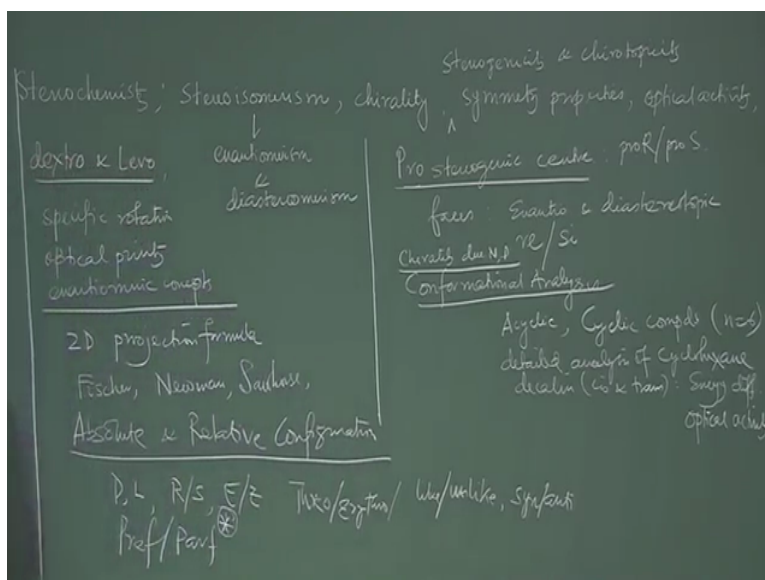 Stereogenicity & chirotopicity
Stereochemistry; Stereoisomerism, chirality, ^ symmetry properties, optical activity,
↓
enantiomerism
&
diastereomerism
dextro & Levo,
specific rotation
optical purity
enantiomeric concepts
2D projection formula
Fischer, Newman, Sawhorse,
Absolute & Relative Configuration
D, L, R/S, E/Z Threo/erythro/ like/unlike, syn/anti
Pref/Parf *
Prostereogenic centre: proR/pros.
faces: Enantio & diastereotopic
re/si
Chirality due N, P
Conformational Analysis
Acyclic, Cyclic compds (n=6)
detailed analysis of cyclohexane
decalin (cis & trans): Energy diff.
optical activity